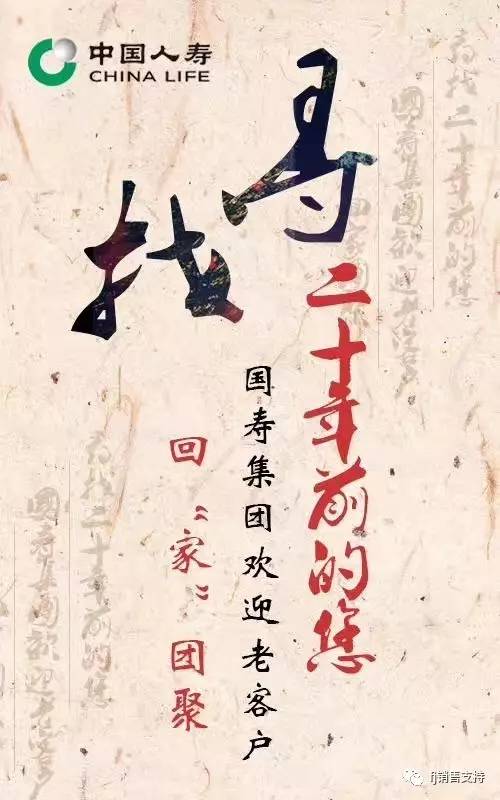 中国人寿
CHINA LIFE
寻找
二十年前的您
国寿集团欢迎老客户
回“家”团聚
寻找二十年前的您
國寿集團欢迎老客户
寻找二十年前的您
國寿集團欢迎老客户
fj销售支持